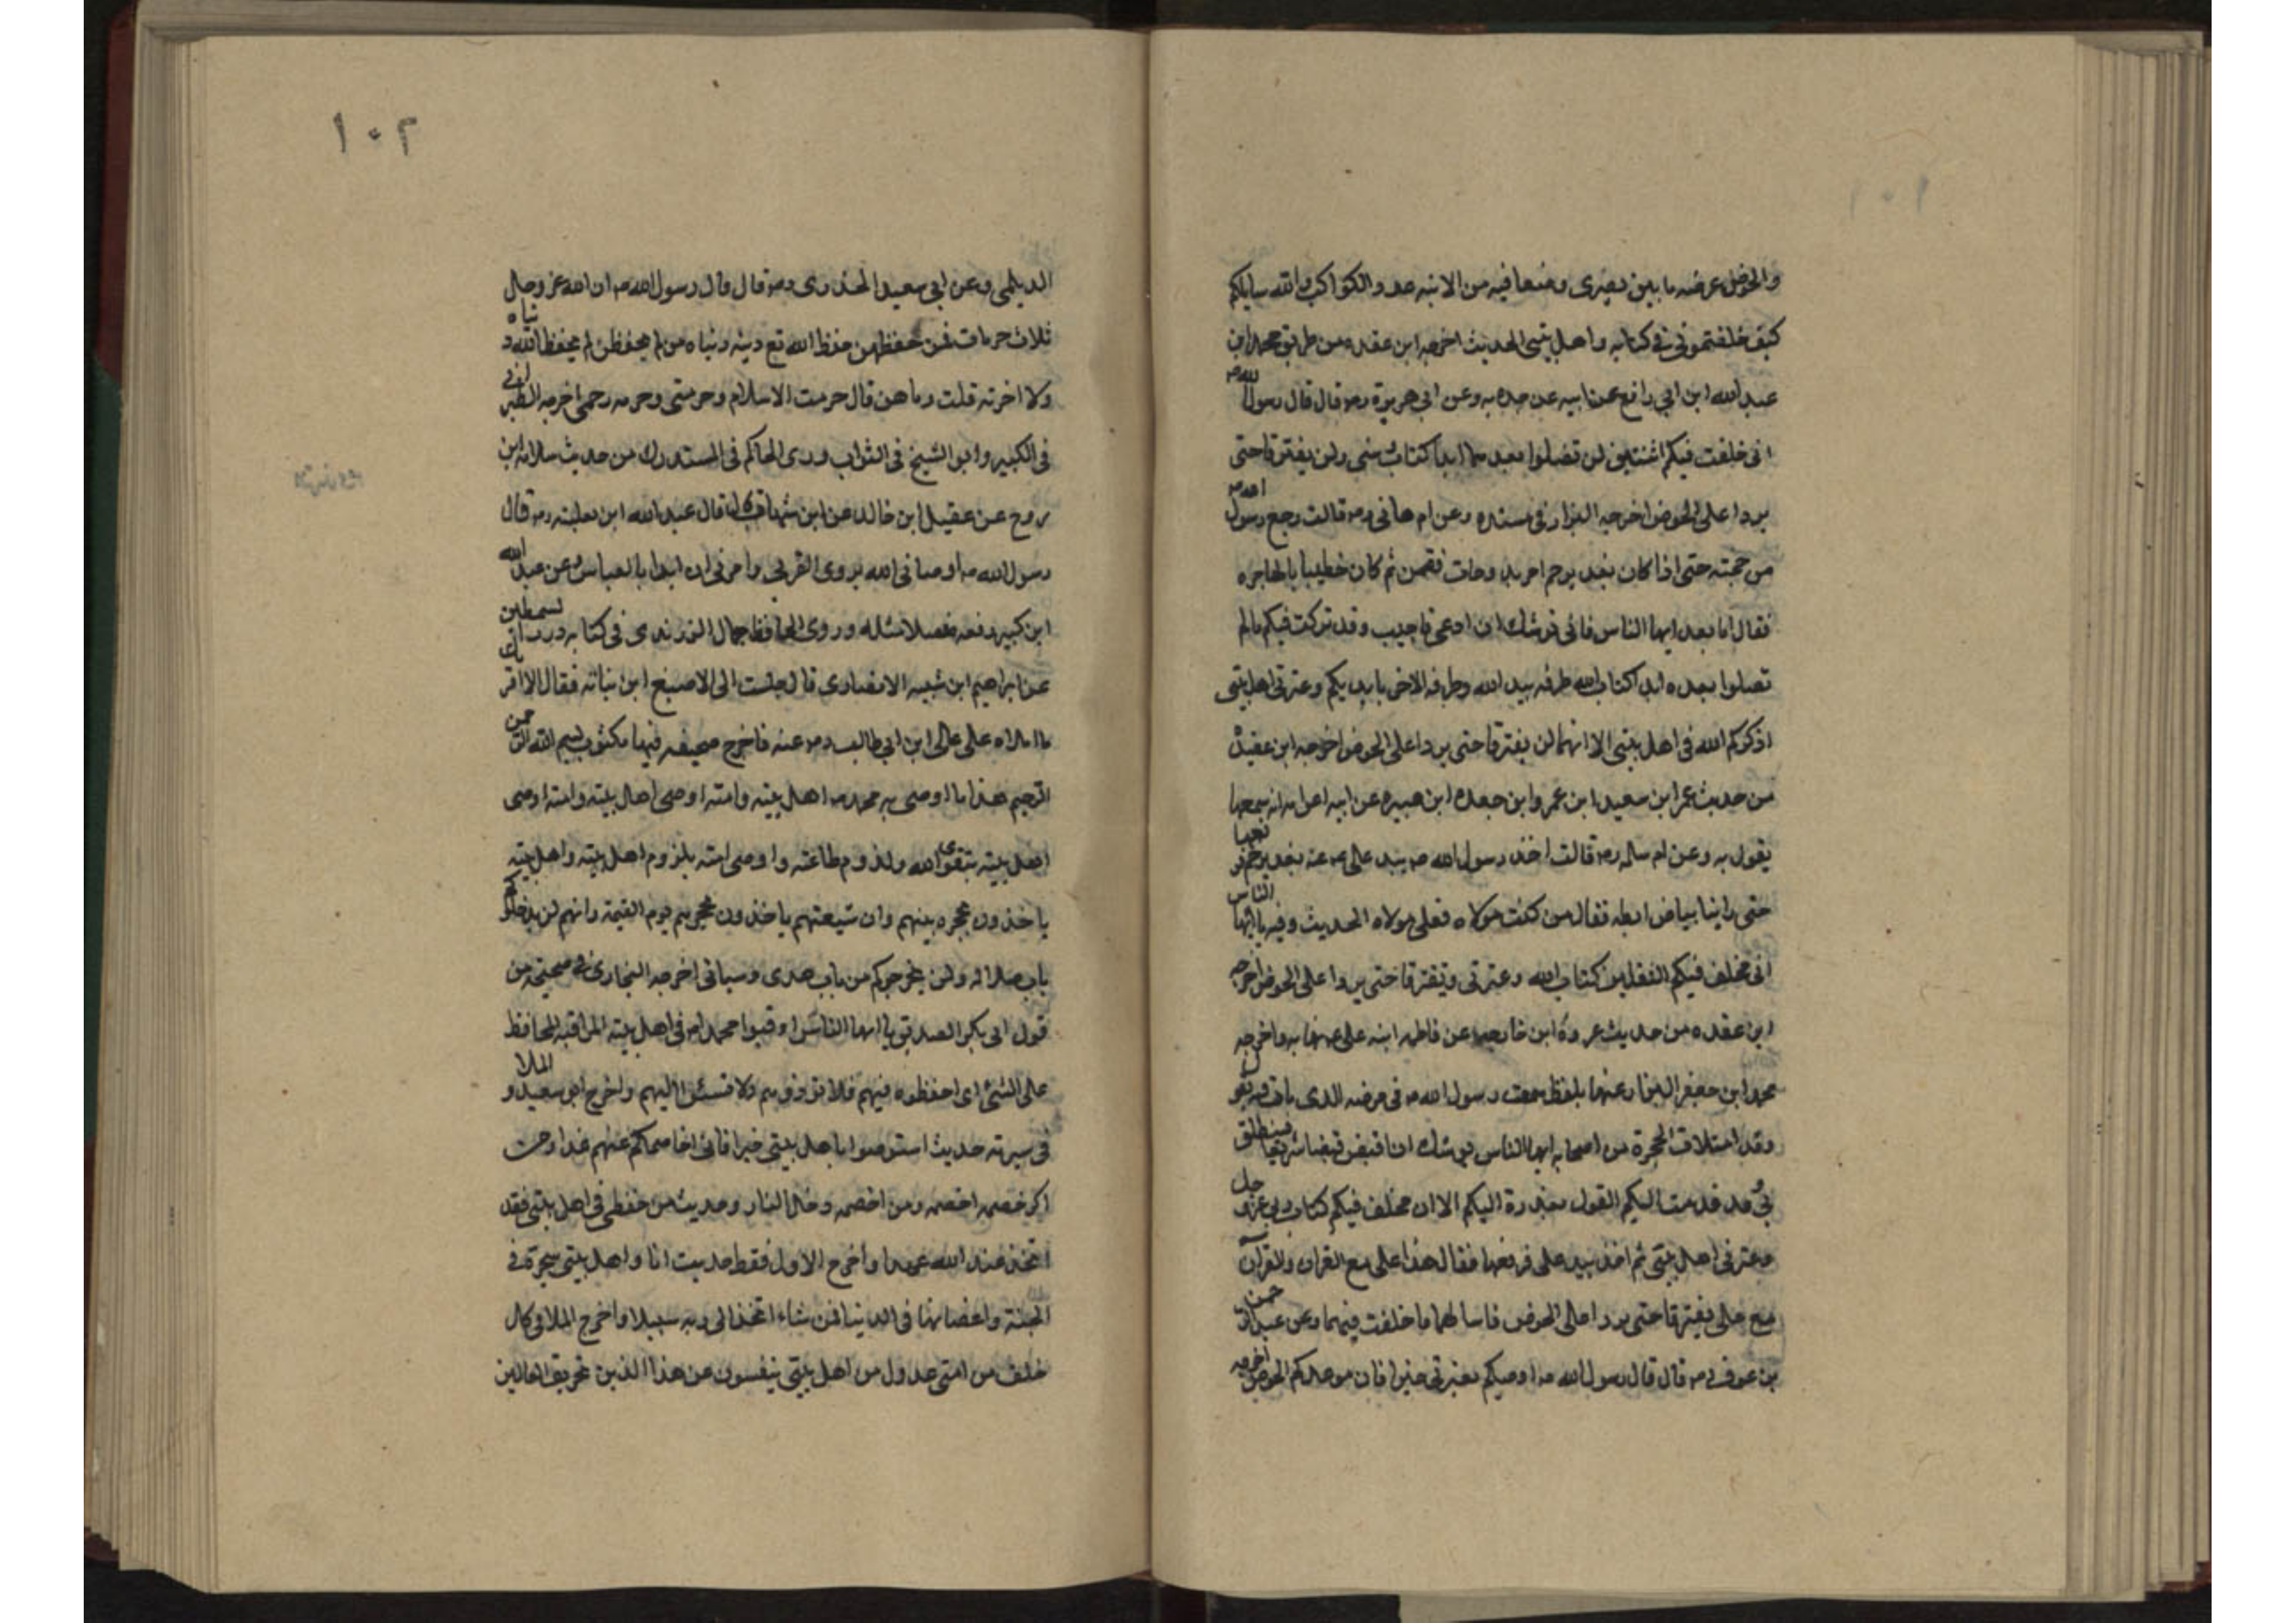 والحوض عرضه ما بين بصرى وصنعا فيه من الانيه عدد الكواكب والله سايلكم
كيف خلفتموني في كتابه واهل بيتي الحديث اخرجه ابن عقده من طريق محمد ابن
عبد الله ابن ابي رافع عن ابيه عن جده به وعن ابي هريرة رضه قال قال رسول الله صم
اني خلفت فيكم اثنين لن تضلوا بعدهما ابدا كتاب نبى ولن يفترقا حتى
يردا على الحوض اخرجه البزار في مسنده وعن ام هاني رضه قالت رجع رسول الله صم
من حجته حتى اذا كان بغدير خم امر بدوحات فقممن ثم كان خطيبا بالهاجره
فقال اما بعد ايها الناس فاني اوشك ان ادعى فاجيب وقد تركت فيكم ما لم
تضلوا بعده ابدا كتاب الله طرفه بيد الله وطرفه الاخر بايديكم وعترتي اهل بيتي
اذكركم الله في اهل بيتي الا انهما لن يفترقا حتى يردا على الحوض اخرجه ابن عقيدة
من حديث عمر ابن سعيد ابن عمر وابن جعده ابن هبيره عن ابيه انه سمعها
يقول به وعن ام سلمه رضه قالت اخذ رسول الله صم بيد على رضه عنه بغدير خم فرفعها
حتى راينا بياض ابطه فقال من كنت مولاه فعلى مولاه الحديث وفيه يا ايها الناس
انى مخلف فيكم الثقلين كتاب الله وعترتى ويتفترقا حتى يردا على الحوض اخرجه
ابن عقده من حديث عروة ابن خارجه عن فاطمه ابنه على عنها به واخرجه
محمد ابن جعفر الرزاز عنها بلفظ سمعت رسول الله صم في مرضه الذى مات فيه يقول
وقد امتلات الحجرة من اصحابه ايها الناس يوشك ان اقبض قبضا سريعا فينطلق
بى وقد قدمت اليكم القول معذرة اليكم الا ان مخلف فيكم كتاب ربى عز وجل
وعترتى اهل بيتى ثم اخذ بيد على فرفعها فقال هذا على مع القران والقرآن
مع على يفترقا حتى يردا على الحوض فاسالهما ما خلفت فيهما وعن عبد الرحمن
بن عوف رضه قال قال رسول الله صم اوصيكم بعترتى خيرا فان موعدكم الحوض اخرجه
١٠٢
الديلمي وعن ابي سعيد الخدرى رضه قال قال رسول الله صم ان الله عز وجل
ثلاث حرمات فمن حفظهن حفظ الله تع دينه ودنياه ومن لم يحفظهن لم يحفظ الله دنياه
ولا اخرته قلت وما هن قال حرمت الاسلام وحرمتى وحرمه رحمى اخرجه الطبرانى
في الكبير وابو الشيخ فى الثواب وروى الحاكم فى المستدرك من حديث سلامه ابن
روح عن عقيل ابن خالد عن ابن شهاب قال قال عبد الله ابن ثعلبته رضه قال
رسول الله صم اوصانى الله بذوى القربى وامرنى ان ابدا بالعباس وعن عبد الله
ابن كثير رفعه مفصلا مثله وروى الحافظ جمال الزرندى فى كتابه درر السمطين
عن ابراهيم ابن شيبه الانصارى قال جلست الى الاصبغ ابن نباته فقال الا اقر
ما املاه على على ابن ابى طالب رضه عنه فاخرج صحيفه فيها مكتوب بسم الله الرحمن
الرحيم هذا ما اوصى به محمد صم اهل بيته وامته اوصى اهل بيته وامته اوصى
اهل بيته بتقوى الله ولذوم طاعته واوصى امته بلزوم اهل بيته واهل بيته
ياخذون بحجزه بينهم وان شيعتهم ياخذون بحجزهم يوم القيمة وانهم لن يدخلوكم
باب ضلاله ولن يخرجوكم من باب هدى وسياتى اخرجه البخارى فى صحيحه من
قول ابى بكر الصديق يا ايها الناس ارقبوا محمدا صم فى اهل بيته المراقبه المحافظ
على الشئ اى احفظوه فيهم فلا توذوهم ولا تسئوا اليهم واخرج ابو سعيد والملا
فى سيرته حديث استوصوا باهل بيتى خيرا فانى اخاصمكم عنهم غدا ومن
اكن خصمه اخصمه ومن اخصمه دخل النار وحديث من حفظنى فى اهل بيتى فقد
اتخذ عند الله عهدا واخرج الاول فقط حديث انا واهل بيتى شجرة فى
الجنة واغصانها فى الدنيا فمن شاء اتخذ الى ربه سبيلا واخرج الملا فى كل
خلف من امتى عدول من اهل بيتى ينفسون عن هذا الذين تحريق الغالين